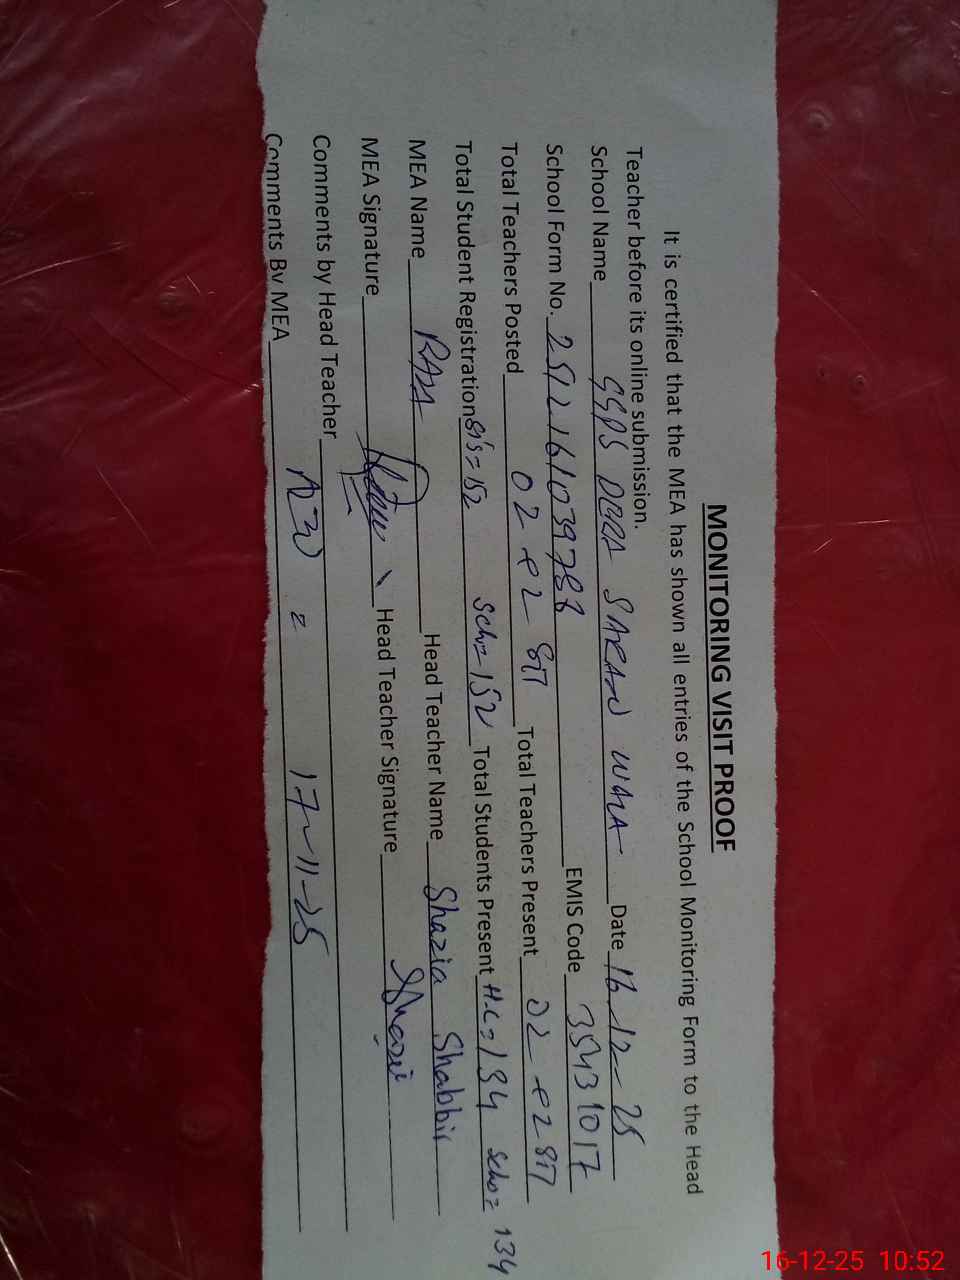 MONITORING VISIT PROOF
It is certified that the MEA has shown all entries of the School Monitoring Form to the Head
Teacher before its online submission.
School Name GGPS DERA SARAN WALA Date 16-12-25
School Form No. EMIS Code 35431017
Total Teachers Posted 02 Total Teachers Present 02
Total Student Registration SIS=152 Sch=152 Total Students Present H.C=134 Sch=134
MEA Name RAZA Head Teacher Name Shazia Shabbir
MEA Signature Head Teacher Signature Shazia
Comments by Head Teacher
Comments By MEA 17-11-25
16-12-25 10:52